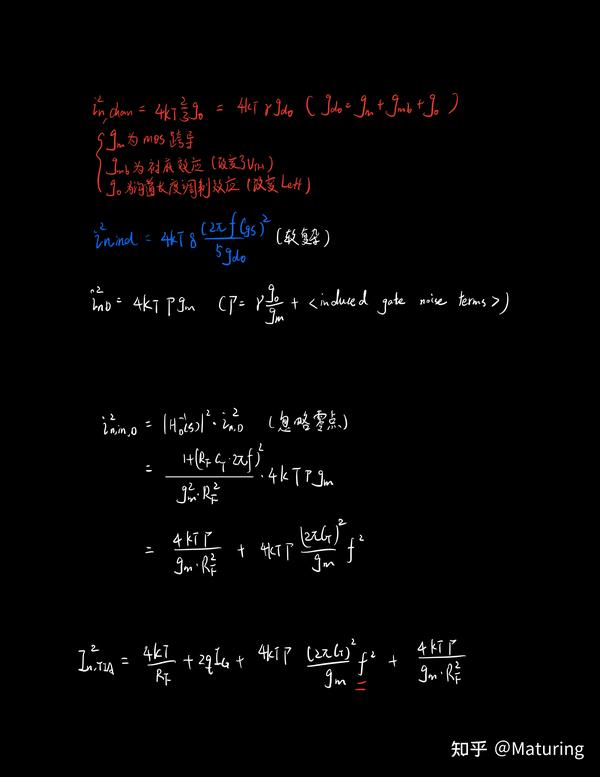 i²n,chan = 4kT 2/3 g₀ = 4kT γ g_do ( g_do = g_m + g_mb + g_o )
{ g_m 为 MOS 跨导
g_mb 为衬底效应 (改变了V_TH)
g_o 为沟道长度调制效应 (改变 Leff)
i²n,ind = 4kT δ (2π f C_gs)² / 5g_do (较复杂)
i²n,D = 4kT Γ g_m (Γ = γ g_o/g_m + <induced gate noise terms>)
i²n,in,D = |H_D⁻¹(s)|² · i²n,D (忽略零点)
= 1+(R_F C_T · 2πf)² / g_m² · R_F² · 4kTΓ g_m
= 4kTΓ / g_m · R_F² + 4kTΓ (2πC_T)² / g_m f²
I²n,TIA = 4kT / R_F + 2qI_G + 4kTΓ (2πC_T)² / g_m f² + 4kTΓ / g_m · R_F²
知乎 @Maturing